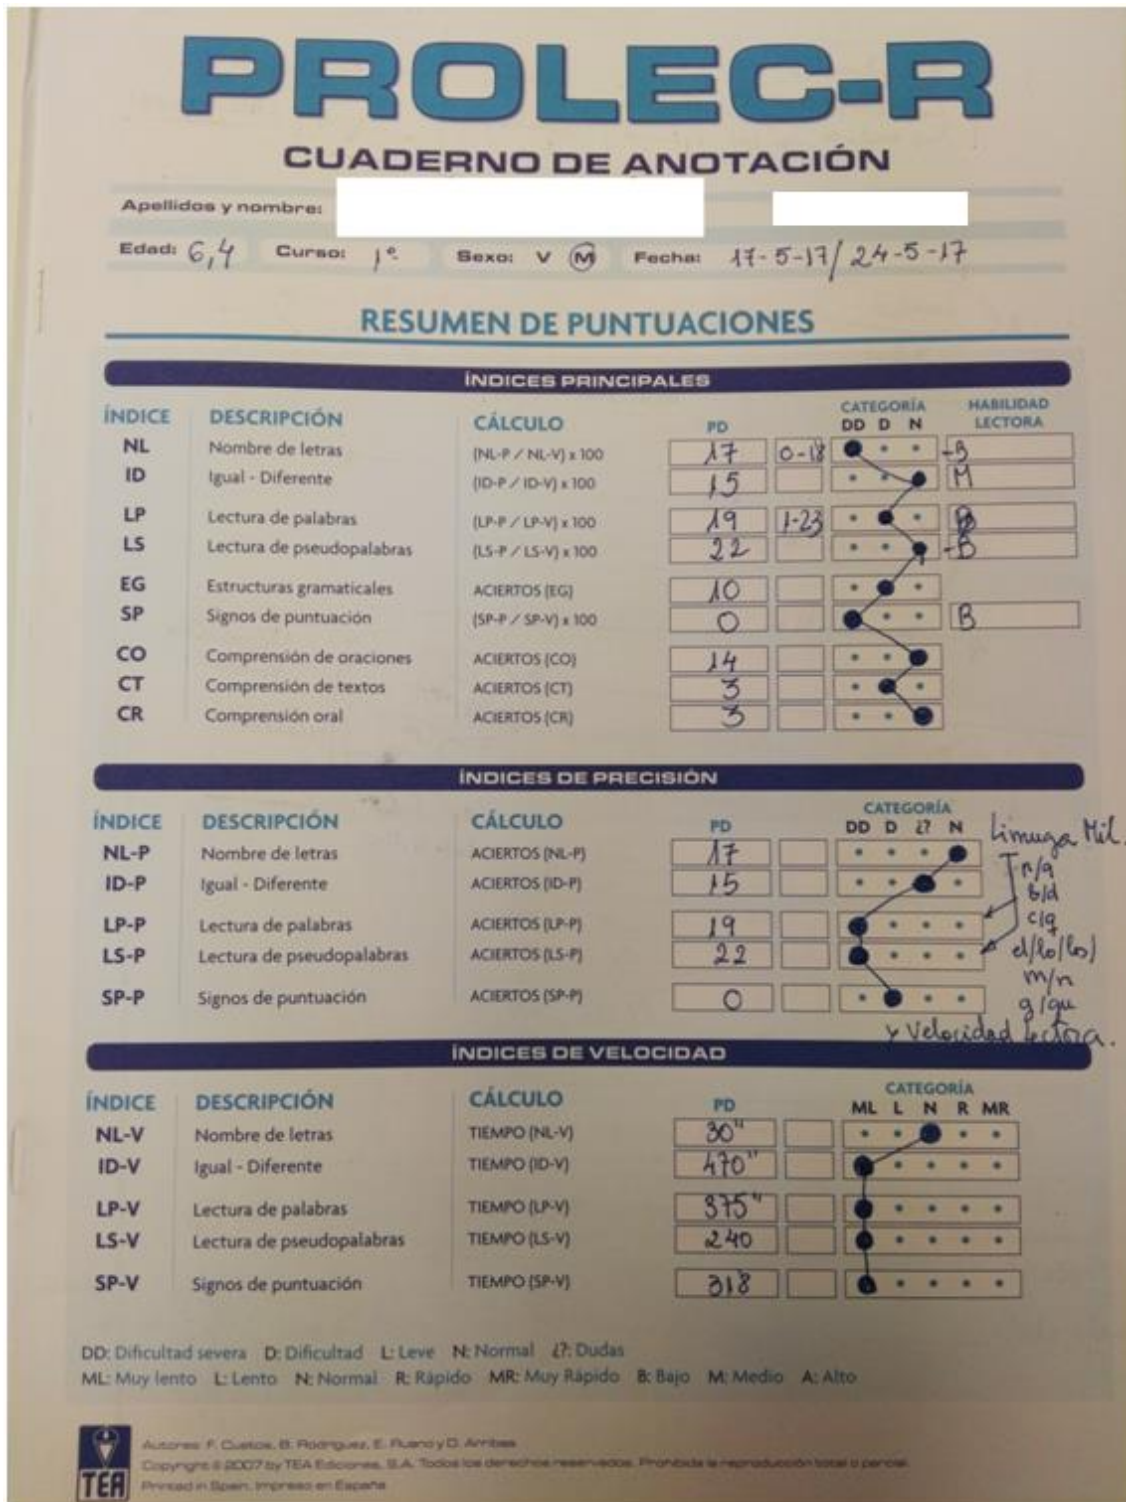 PROLEC-R
CUADERNO DE ANOTACIÓN
Apellidos y nombre:
Edad: 6,4 Curso: 1º Sexo: V M Fecha: 17-5-17/ 24-5-17
RESUMEN DE PUNTUACIONES
ÍNDICES PRINCIPALES
ÍNDICE DESCRIPCIÓN CÁLCULO PD CATEGORÍA DD D N HABILIDAD LECTORA
NL Nombre de letras (NL-P / NL-V) x 100 17 0-18 -B
ID Igual - Diferente (ID-P / ID-V) x 100 15 M
LP Lectura de palabras (LP-P / LP-V) x 100 19 1-23 B
LS Lectura de pseudopalabras (LS-P / LS-V) x 100 22 -B
EG Estructuras gramaticales ACIERTOS (EG) 10
SP Signos de puntuación (SP-P / SP-V) x 100 0 B
CO Comprensión de oraciones ACIERTOS (CO) 14
CT Comprensión de textos ACIERTOS (CT) 3
CR Comprensión oral ACIERTOS (CR) 3
ÍNDICES DE PRECISIÓN
ÍNDICE DESCRIPCIÓN CÁLCULO PD CATEGORÍA DD D ¿? N
NL-P Nombre de letras ACIERTOS (NL-P) 17
ID-P Igual - Diferente ACIERTOS (ID-P) 15
LP-P Lectura de palabras ACIERTOS (LP-P) 19
LS-P Lectura de pseudopalabras ACIERTOS (LS-P) 22
SP-P Signos de puntuación ACIERTOS (SP-P) 0
b/d
c/q
el/lo/los)
m/n
g/gu
y Velocidad lectora.
ÍNDICES DE VELOCIDAD
ÍNDICE DESCRIPCIÓN CÁLCULO PD CATEGORÍA ML L N R MR
NL-V Nombre de letras TIEMPO (NL-V) 30"
ID-V Igual - Diferente TIEMPO (ID-V) 470"
LP-V Lectura de palabras TIEMPO (LP-V) 375"
LS-V Lectura de pseudopalabras TIEMPO (LS-V) 240
SP-V Signos de puntuación TIEMPO (SP-V) 318
DD: Dificultad severa D: Dificultad L: Leve N: Normal ¿?: Dudas
ML: Muy lento L: Lento N: Normal R: Rápido MR: Muy Rápido B: Bajo M: Medio A: Alto
TEA
Autores: F. Cuetos, B. Rodríguez, E. Ruano y D. Arribas
Copyright © 2007 by TEA Ediciones, S.A. Todos los derechos reservados. Prohibida la reproducción total o parcial.
Printed in Spain. Impreso en España